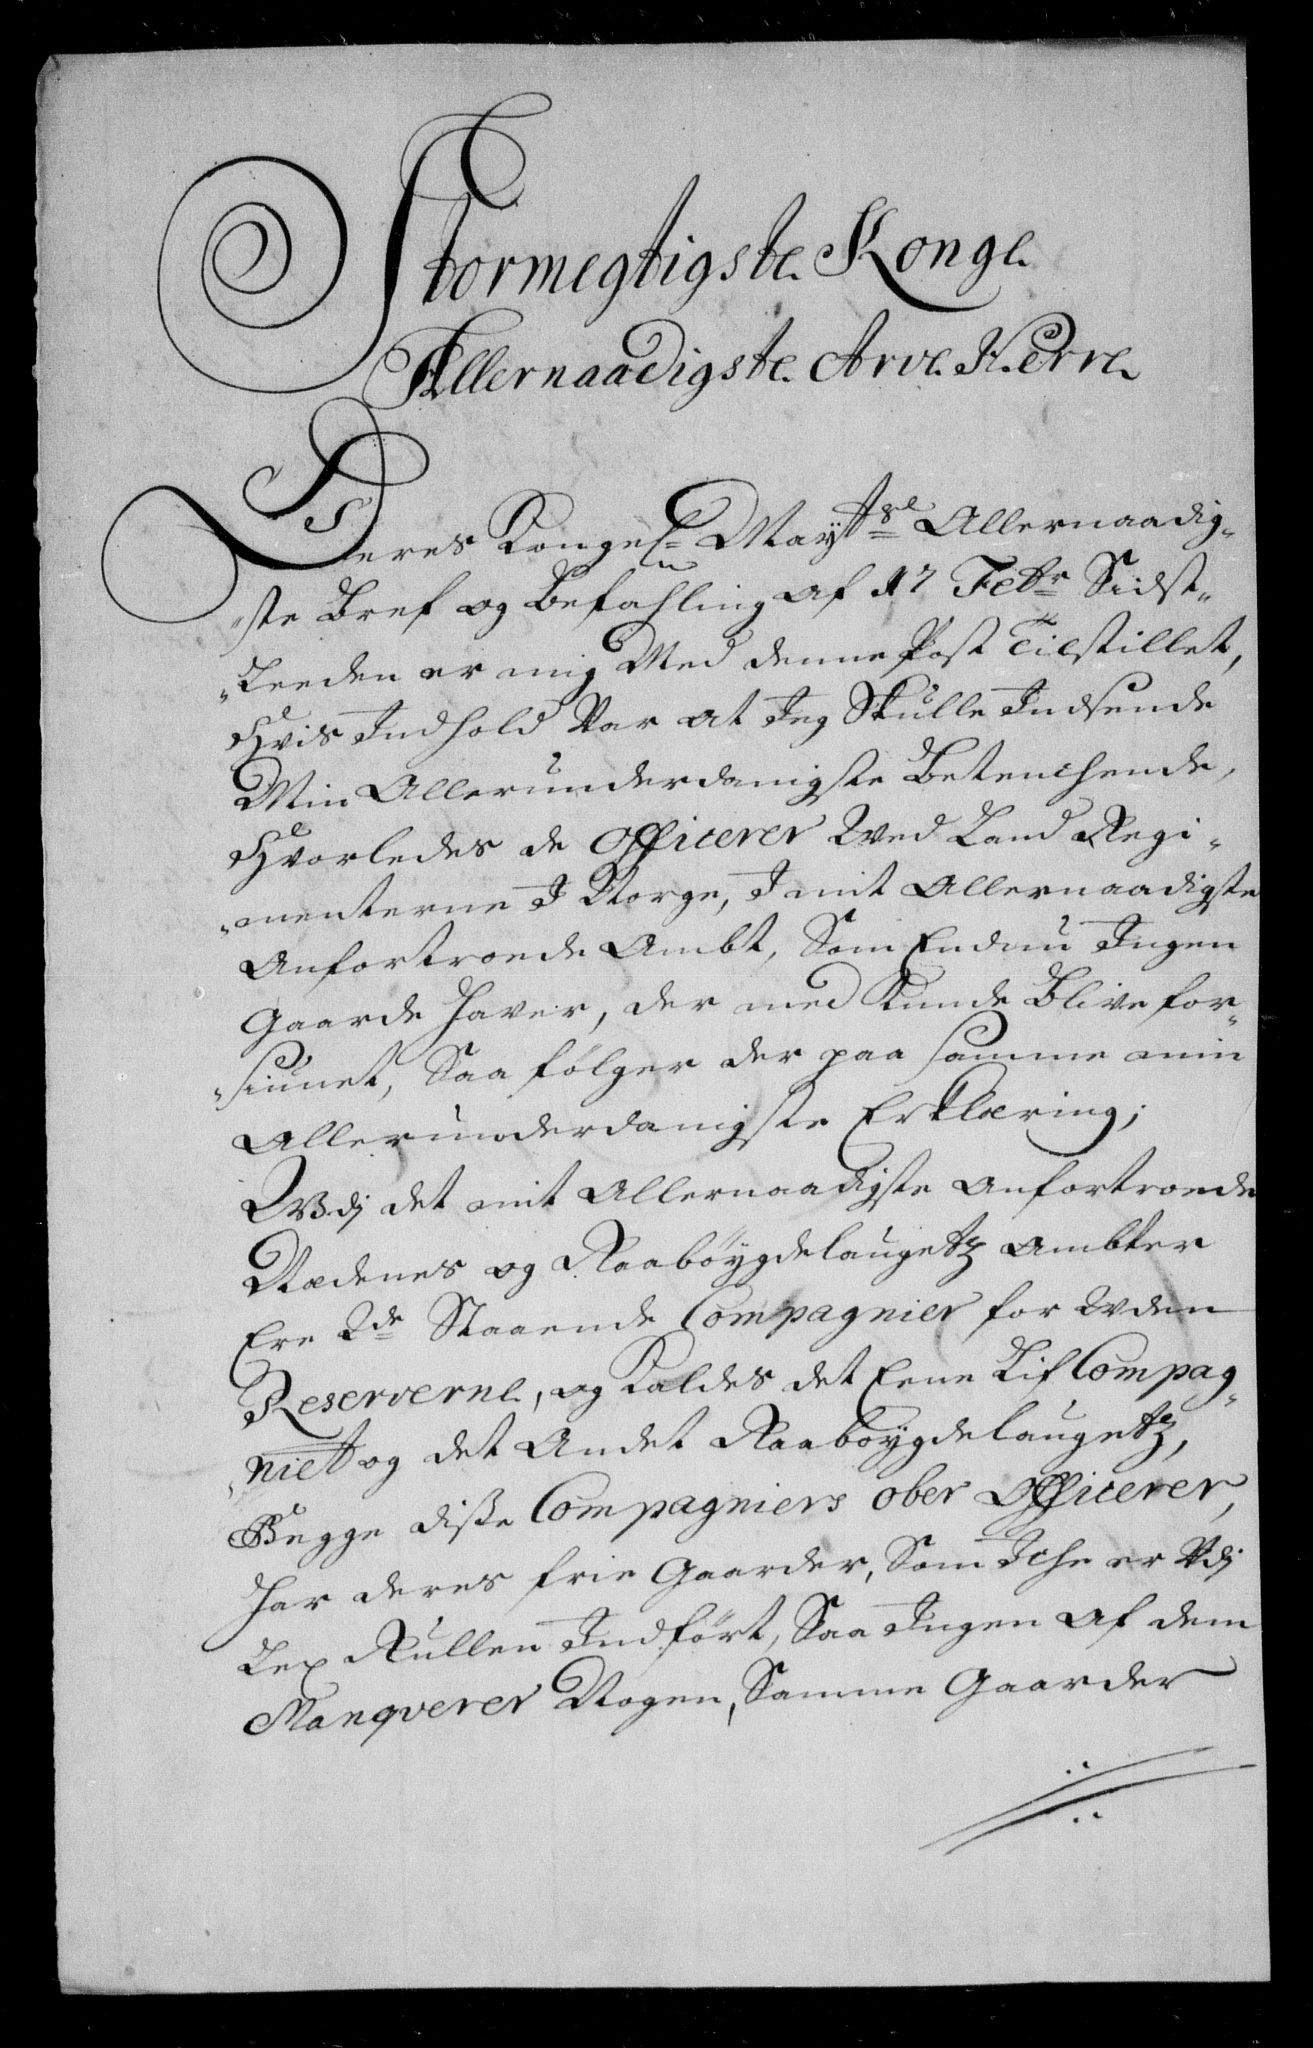 Stormegtigste Konge
Allernaadigste Arve Herre
Deres Kongel: Maytts Allernaadig-
-ste Bref og Befahling af 17 Febr Sidst-
-Leeden er mig Med denne Post Tilstillet,
Hvis Indhold Var at Jeg Skulle Indsende
Min Allerunderdanigste Betenchende,
Hvorledes de Officerer Wed Land Regi-
-menterne I Norge, I mit Allernaadigste
Anfortroede Ambt, Som Endnu Ingen
Gaarde haver, der med Kunde Blive for-
-siunet, Saa følger der paa samme min
Allerunderdanigste Erklæring;
Wdj det mit Allernaadigste Anfortroede
Nedenes og Raabøygdelaugetz Ambter
Ere 2de Staaende Compagnier for Uden
Reserverne, og Kaldes det Eene Lif Compag-
-niet og det Andet Raabøygdelaugetz,
Begge disse Compagniers ober Officerer,
har deres frie Gaarder, Som Iche er Vdj
Leg Rullen Indført, Saa Ingen af dem
Manqverer Nogen, Samme Gaarder